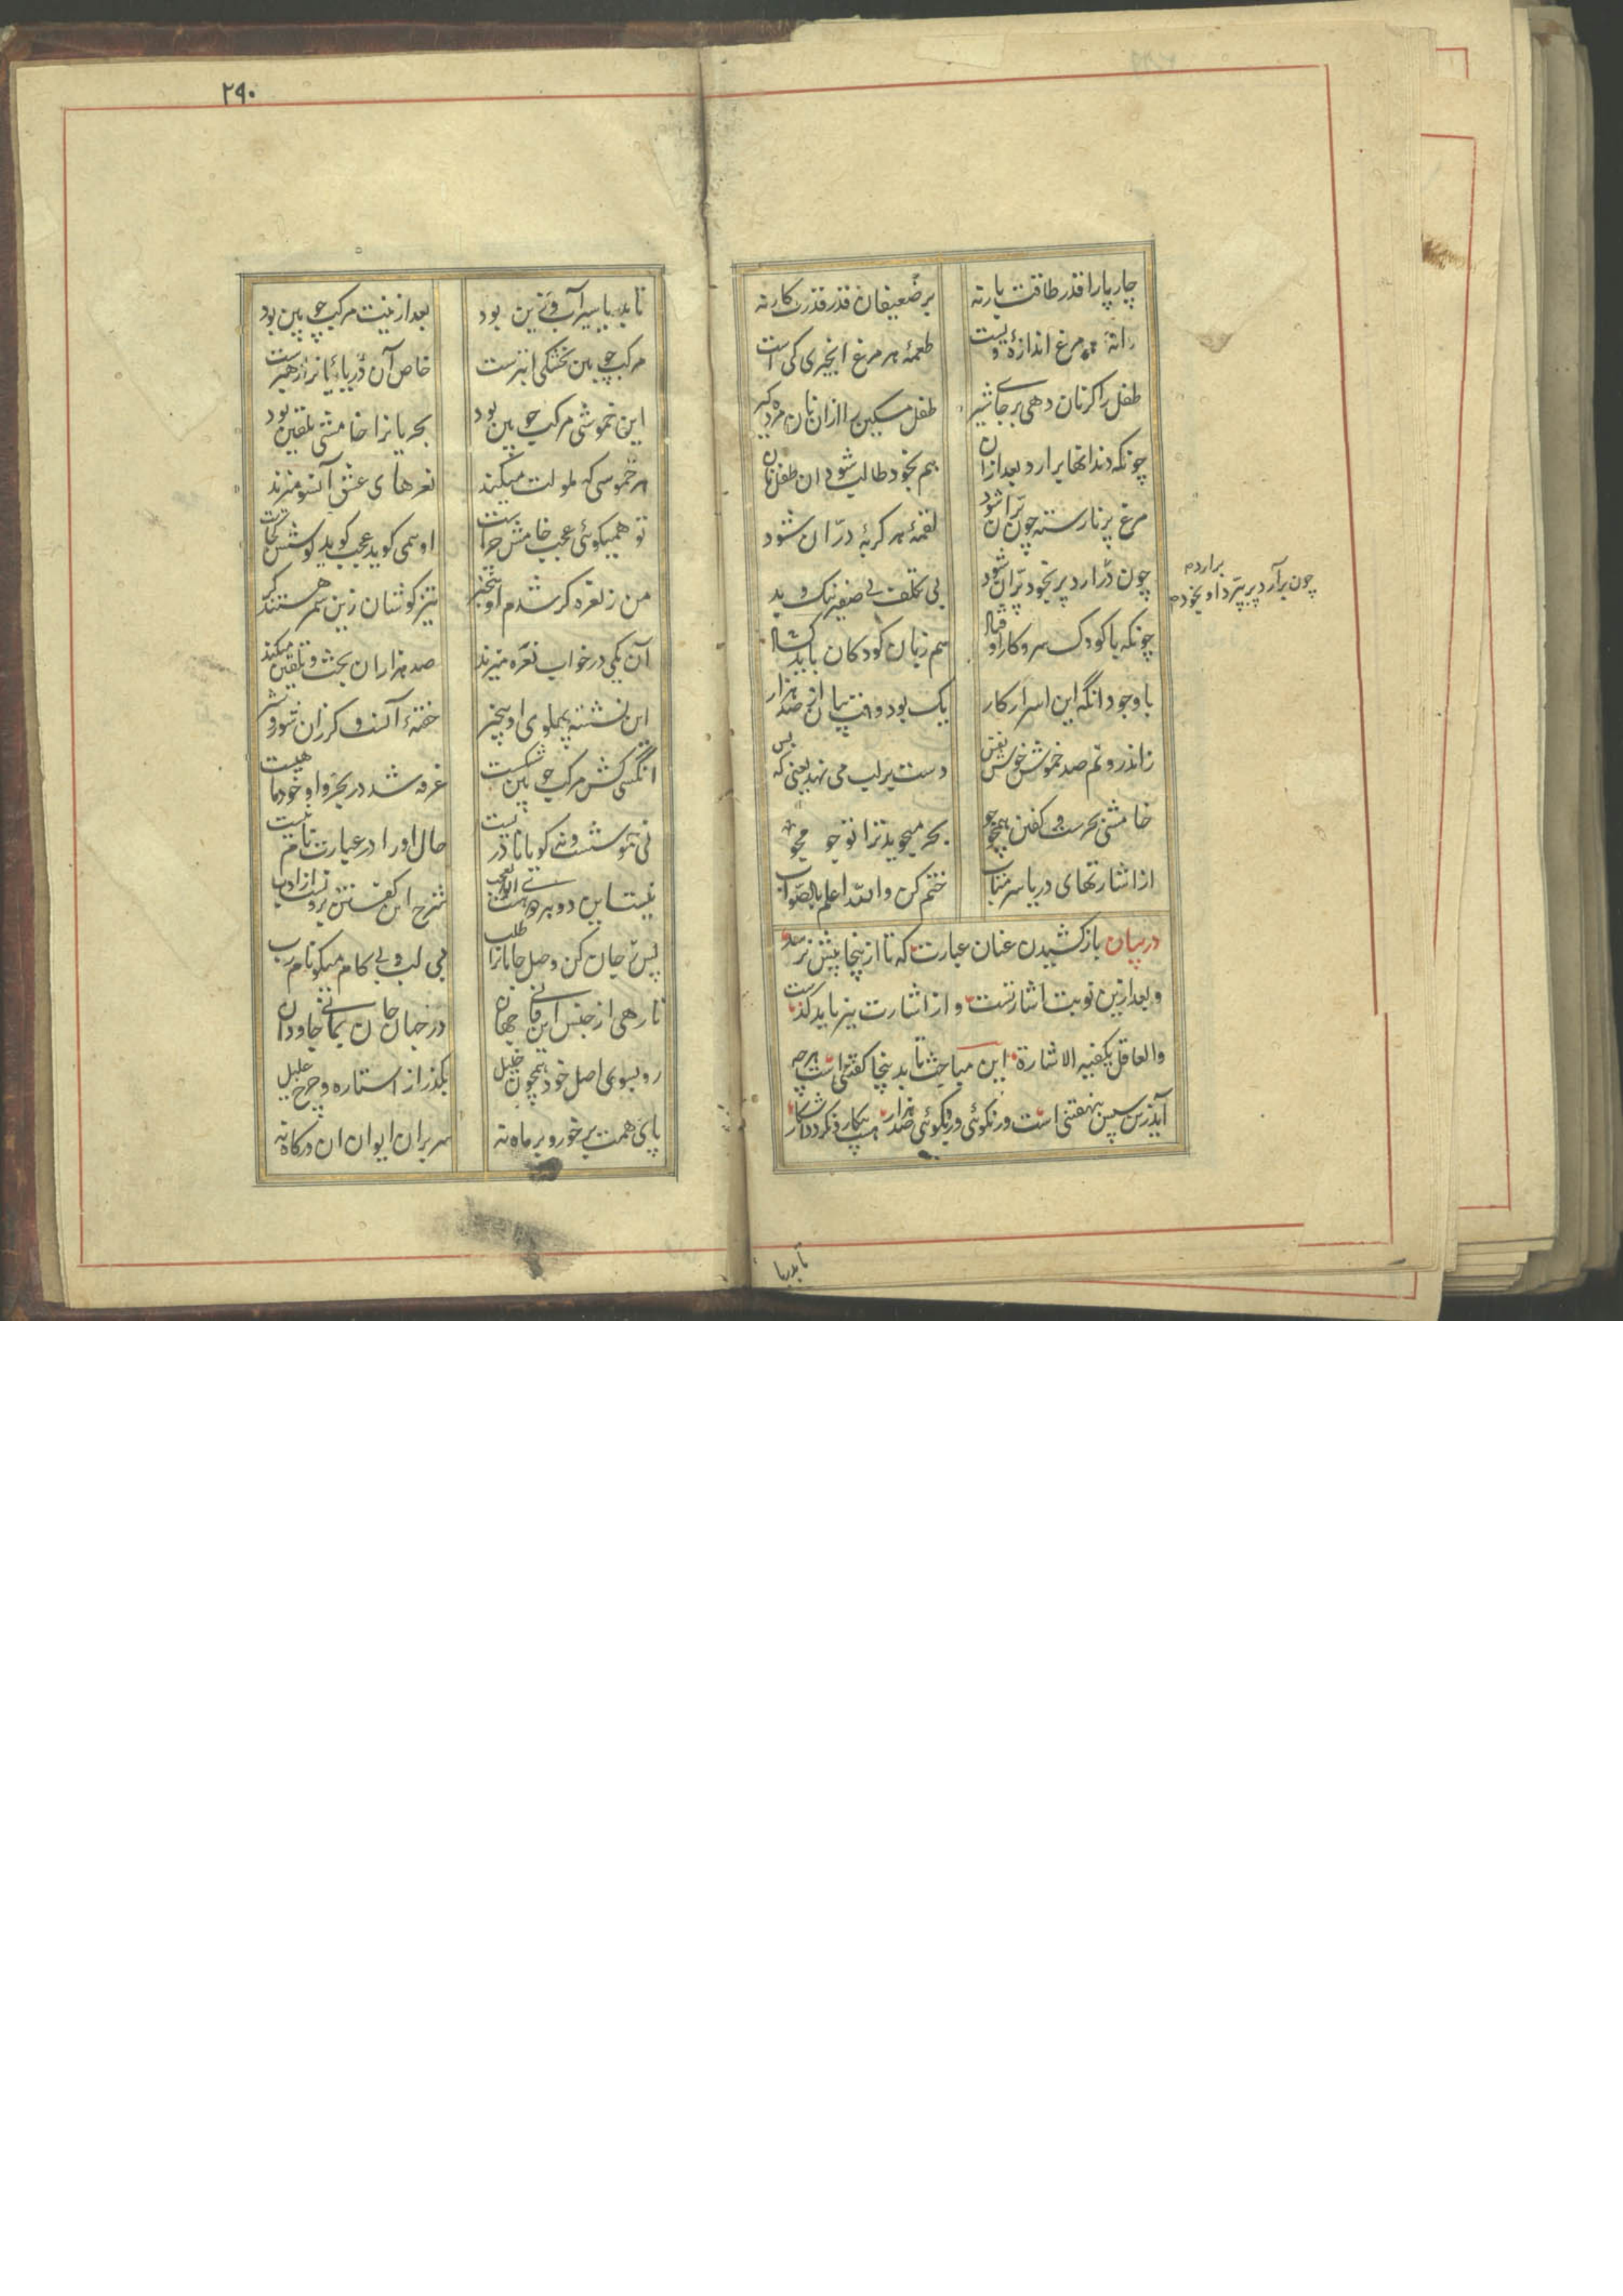 چار پا را قدر طاقت بار نه بر ضعیفان قدر قدرت کار نه
دانهٔ هر مرغ اندازهٔ ویست طعمهٔ هر مرغ انجیری کی است
طفل را کر نان دهی بر جای شیر طفل مسکین را از ان نان مرده کیر
چونکه دندانها برارد بعد ازان هم بخود طالب شود ان طفل نان
مرغ پر نارسته چون پران شود لقمهٔ هر کربهٔ دران شود
چون برارد پر بخود پران شود بی تکلف بی صفیر نیک و بد
چون برآرد پر بپرد او بخود
چونکه با کودک سر و کار او فتاد هم زبان کودکان باید کشاد
با وجود انکه این اسرار کار یک بود وقت بیان از صد هزار
زاندرونم صد خموش خوش نفس دست بر لب می نهد یعنی که بس
خامشی بحرست و کفتن همچو جو بحر میجوید ترا تو جو مجو
از اشارتهای دریا سر متاب ختم کن والله اعلم بالصواب
در بیان بازکشیدن عنان عبارت که تا از ینجا پیش نرسد
و بعد ازین نوبت اشارتست و از اشارت نیز باید کذشت
والعاقل یکفیه الاشارة این مباحث تا بدینجا کفتنی است هرچه
آید زین سپس بنهفتنی است ور نکوئی ور بکوئی صد هزار هست بیکار و نکردد آشکار
تا بدریا
۲۹۰
تا بدریا سیر آب و زین بود بعد ازینت مرکب چوبین بود
مرکب چوبین بخشکی ابترست خاص آن دریائیانرا رهبرست
این خموشی مرکب چوبین بود بحریانرا خامشی تلقین بود
هر خموسی که ملولت میکند نعرهای عشق آنسو میزند
تو همیکوئی عجب خامش چراست او همی کوید عجب کوشش کجاست
من ز نعره کر شدم او بیخبر تیز کوشان زین سمر هستند کر
آن یکی در خواب نعره میزند صد هزاران بحث و تلقین میکند
این نشسته پهلوی او بیخبر خفته آنست و کر زان شور و شر
انکسی کش مرکب چوبین شکست غرقه شد در بحر و او خود ماهیست
نی خموشست و نی کویا نادریست حال او را در عبارت نام نیست
نیست این دو هر دو هست ان بوالعجب شرح این کفتن برونست از ادب
پس ز جان کن وصل جانانرا طلب بی لب و بی کام میکو نام رب
تا رهی از جنس این فانی جهان در جهان جان بمانی جاودان
رو بسوی اصل خود همچون خلیل بکذر از استاره و چرخ علیل
پای همت بر خور و بر ماه نه سر بران ایوان ان درکاه نه